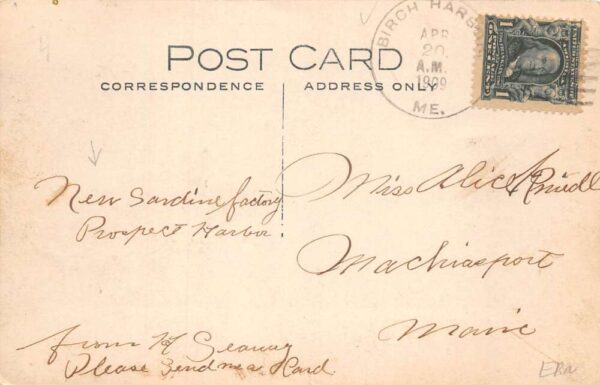 POST CARD
CORRESPONDENCE
ADDRESS ONLY
BIRCH HARB
APR
20
A.M.
1909
ME.
1
1
New Sardine factory
Prospect Harbor
Miss Alice
Machiasport
Maine
from
Please send me a Card